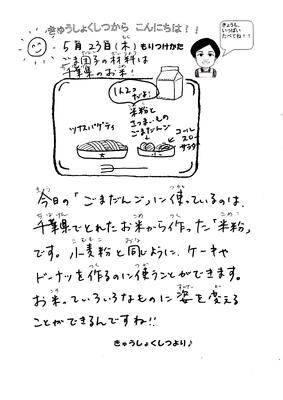 きゅうしょくしつから こんにちは!!
きょうも、
いっぱい
たべてね!!
5月23日(木)もりつけかた
ごま団子の材料は
千葉県のお米!
1人2こ
だよ!
米粉と
さつまいもの
ごまだんご
ツナスパゲティ
コール
スロー
サラダ
今日の「ごまだんご」に使っているのは、
千葉県でとれたお米から作った「米粉」
です。小麦粉と同じように、ケーキや
ドーナツを作るのに使うことができます。
お米っていろいろなものに姿を変える
ことができるんですね!!
きゅうしょくしつより♪